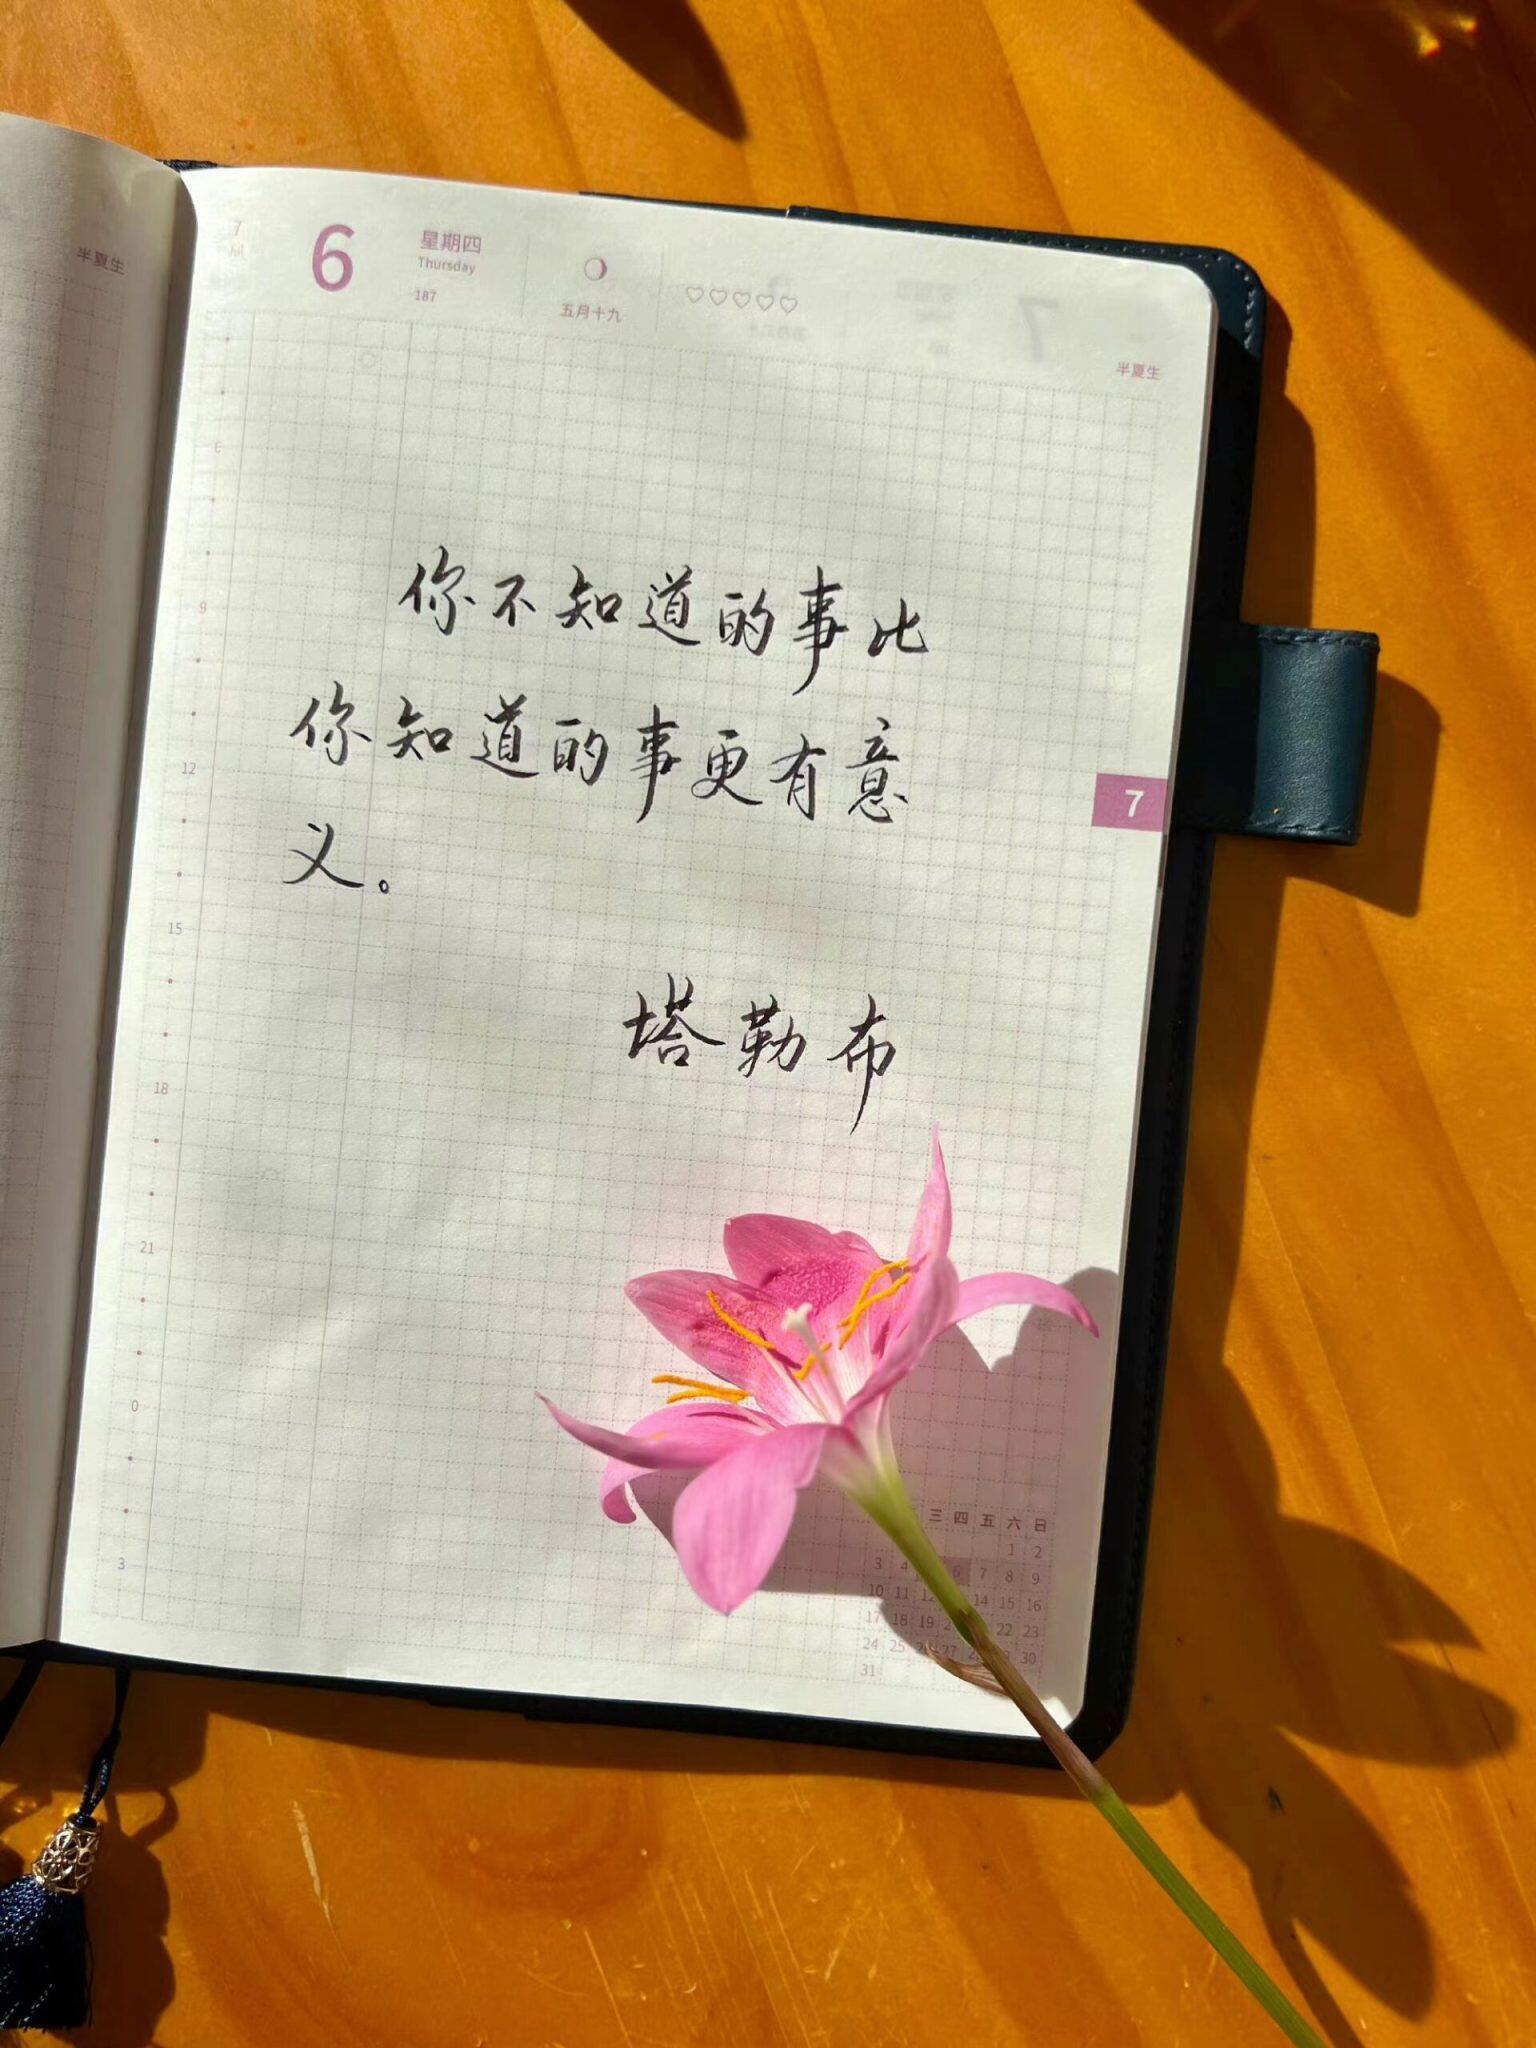 半夏生
7
6
星期四
Thursday
187
五月十九
♡♡♡♡♡
半夏生
6
9
12
15
18
21
0
3
你不知道的事比
你知道的事更有意
义。
塔勒布
7
三 四 五 六 日
1 2
3 4 6 7 8 9
10 11 14 15 16
17 18 19 22 23
24 25 27 30
31